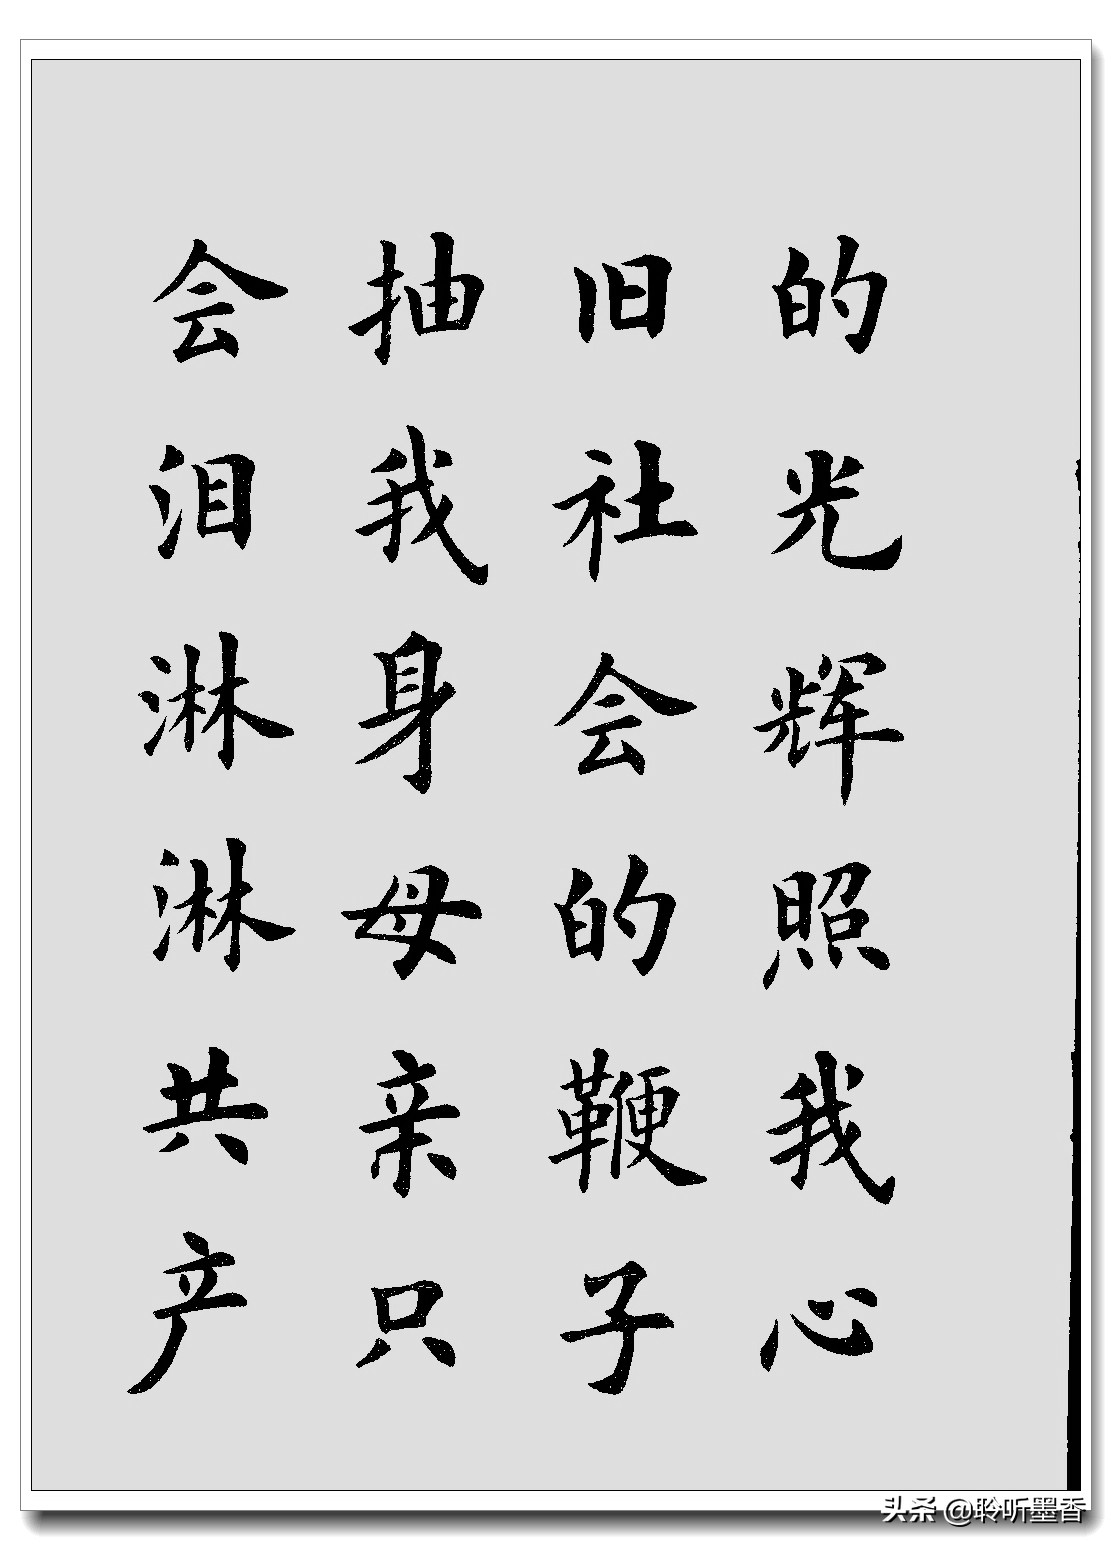 的光辉照我心
旧社会的鞭子
抽我身母亲只
会泪淋淋共产
头条 @聆听墨香